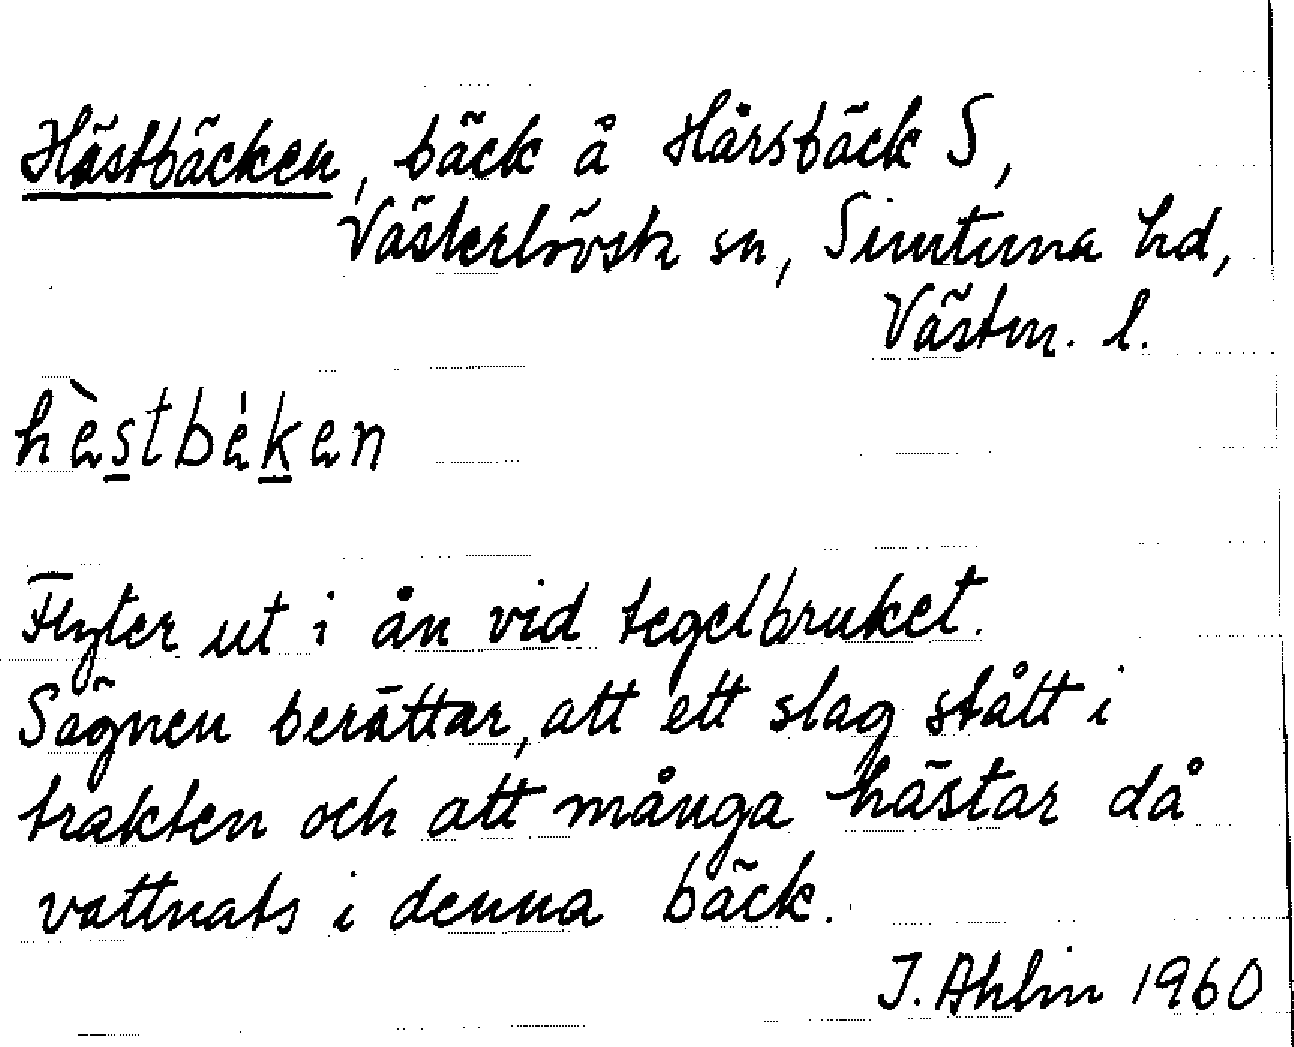 Hästbäcken, bäck å Hårsbäck S,
Västerlövsta sn, Simtuna hd,
Västm. l.
hèstbéken
Flyter ut i ån vid tegelbruket.
Sägnen berättar, att ett slag stått i
trakten och att många hästar då
vattnats i denna bäck.
I. Ahlin 1960